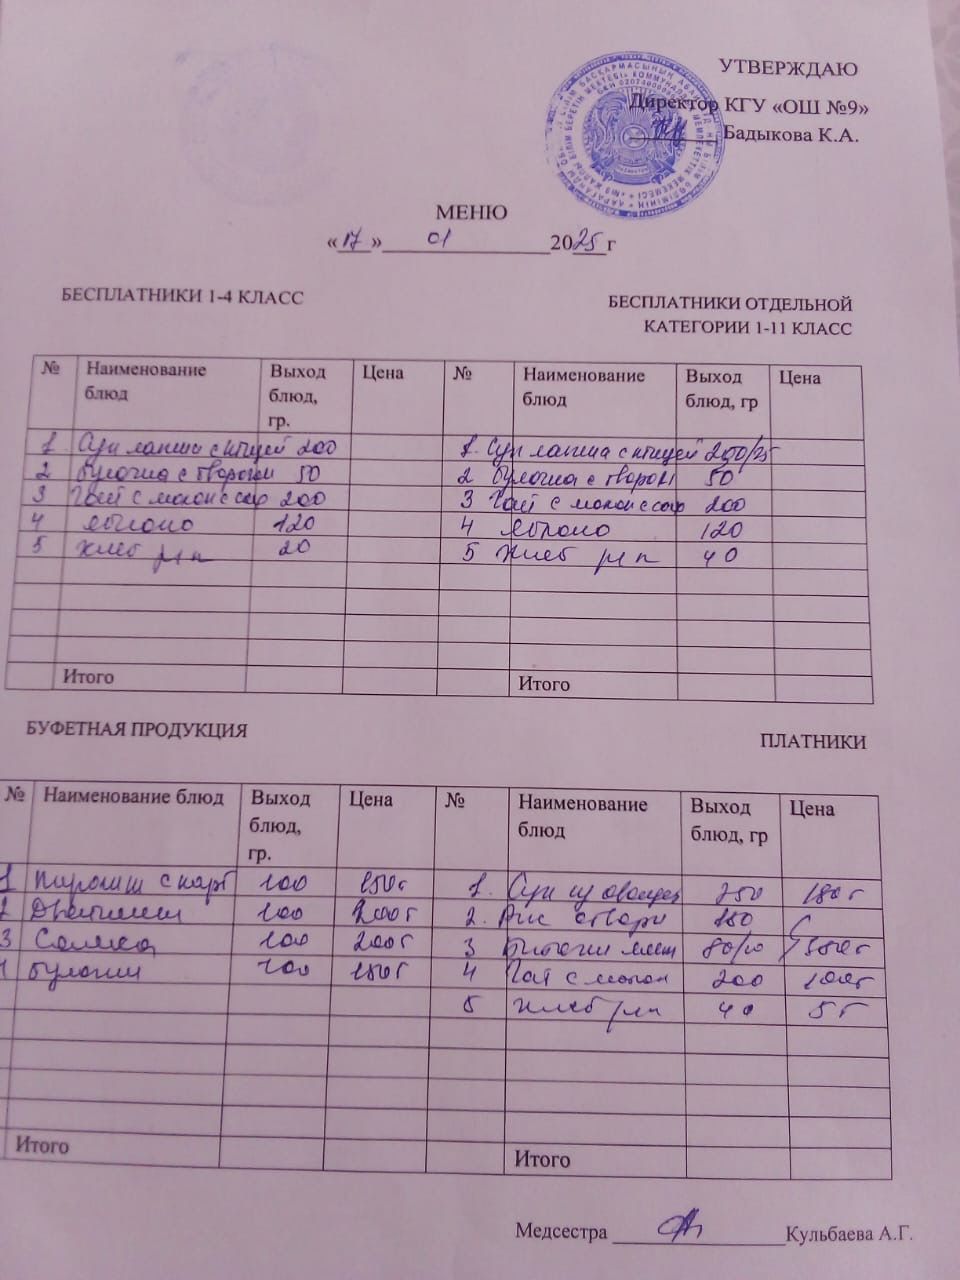 УТВЕРЖДАЮ
Директор КГУ «ОШ №9»
Бадыкова К.А.
МЕНЮ
«17» 01 2025 г
БЕСПЛАТНИКИ 1-4 КЛАСС
БЕСПЛАТНИКИ ОТДЕЛЬНОЙ
КАТЕГОРИИ 1-11 КЛАСС
№ Наименование блюд Выход блюд, гр. Цена № Наименование блюд Выход блюд, гр Цена
1 Суп лапша с птицей 200 1. Суп лапша с птицей 200/25
2 Булочка с творогом 50 2 Булочка с творог 50
3 Чай с молок с сах 200 3 Чай с молок с сах 200
4 яблоко 120 4 яблоко 120
5 хлеб рп 20 5 хлеб рп 40
Итого Итого
БУФЕТНАЯ ПРОДУКЦИЯ
ПЛАТНИКИ
№ Наименование блюд Выход блюд, гр. Цена № Наименование блюд Выход блюд, гр Цена
1 Пирожки с карт 100 150т 1. Суп из овощей 250 180т
2 100 200т 2. Рис отвар 150
3 100 200т 3 Биточки мяс
4 Булочки 100 150т 4 Чай с молок 200 100т
5 хлеб рп 40 5т
Итого Итого
Медсестра Кульбаева А.Г.